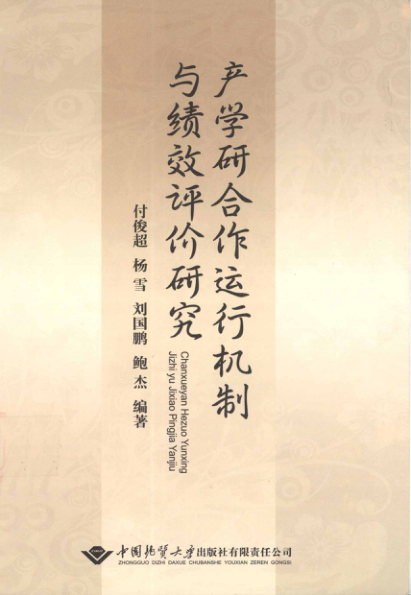 产学研合作运行机制
与绩效评价研究
Chanxueyan Hezuo Yunxing
Jizhi yu Jixiao Pingjia Yanjiu
付俊超 杨雪 刘国鹏 鲍杰 编著
中国地质大学出版社有限责任公司
ZHONGGUO DIZHI DAXUE CHUBANSHE YOUXIAN ZEREN GONGSI